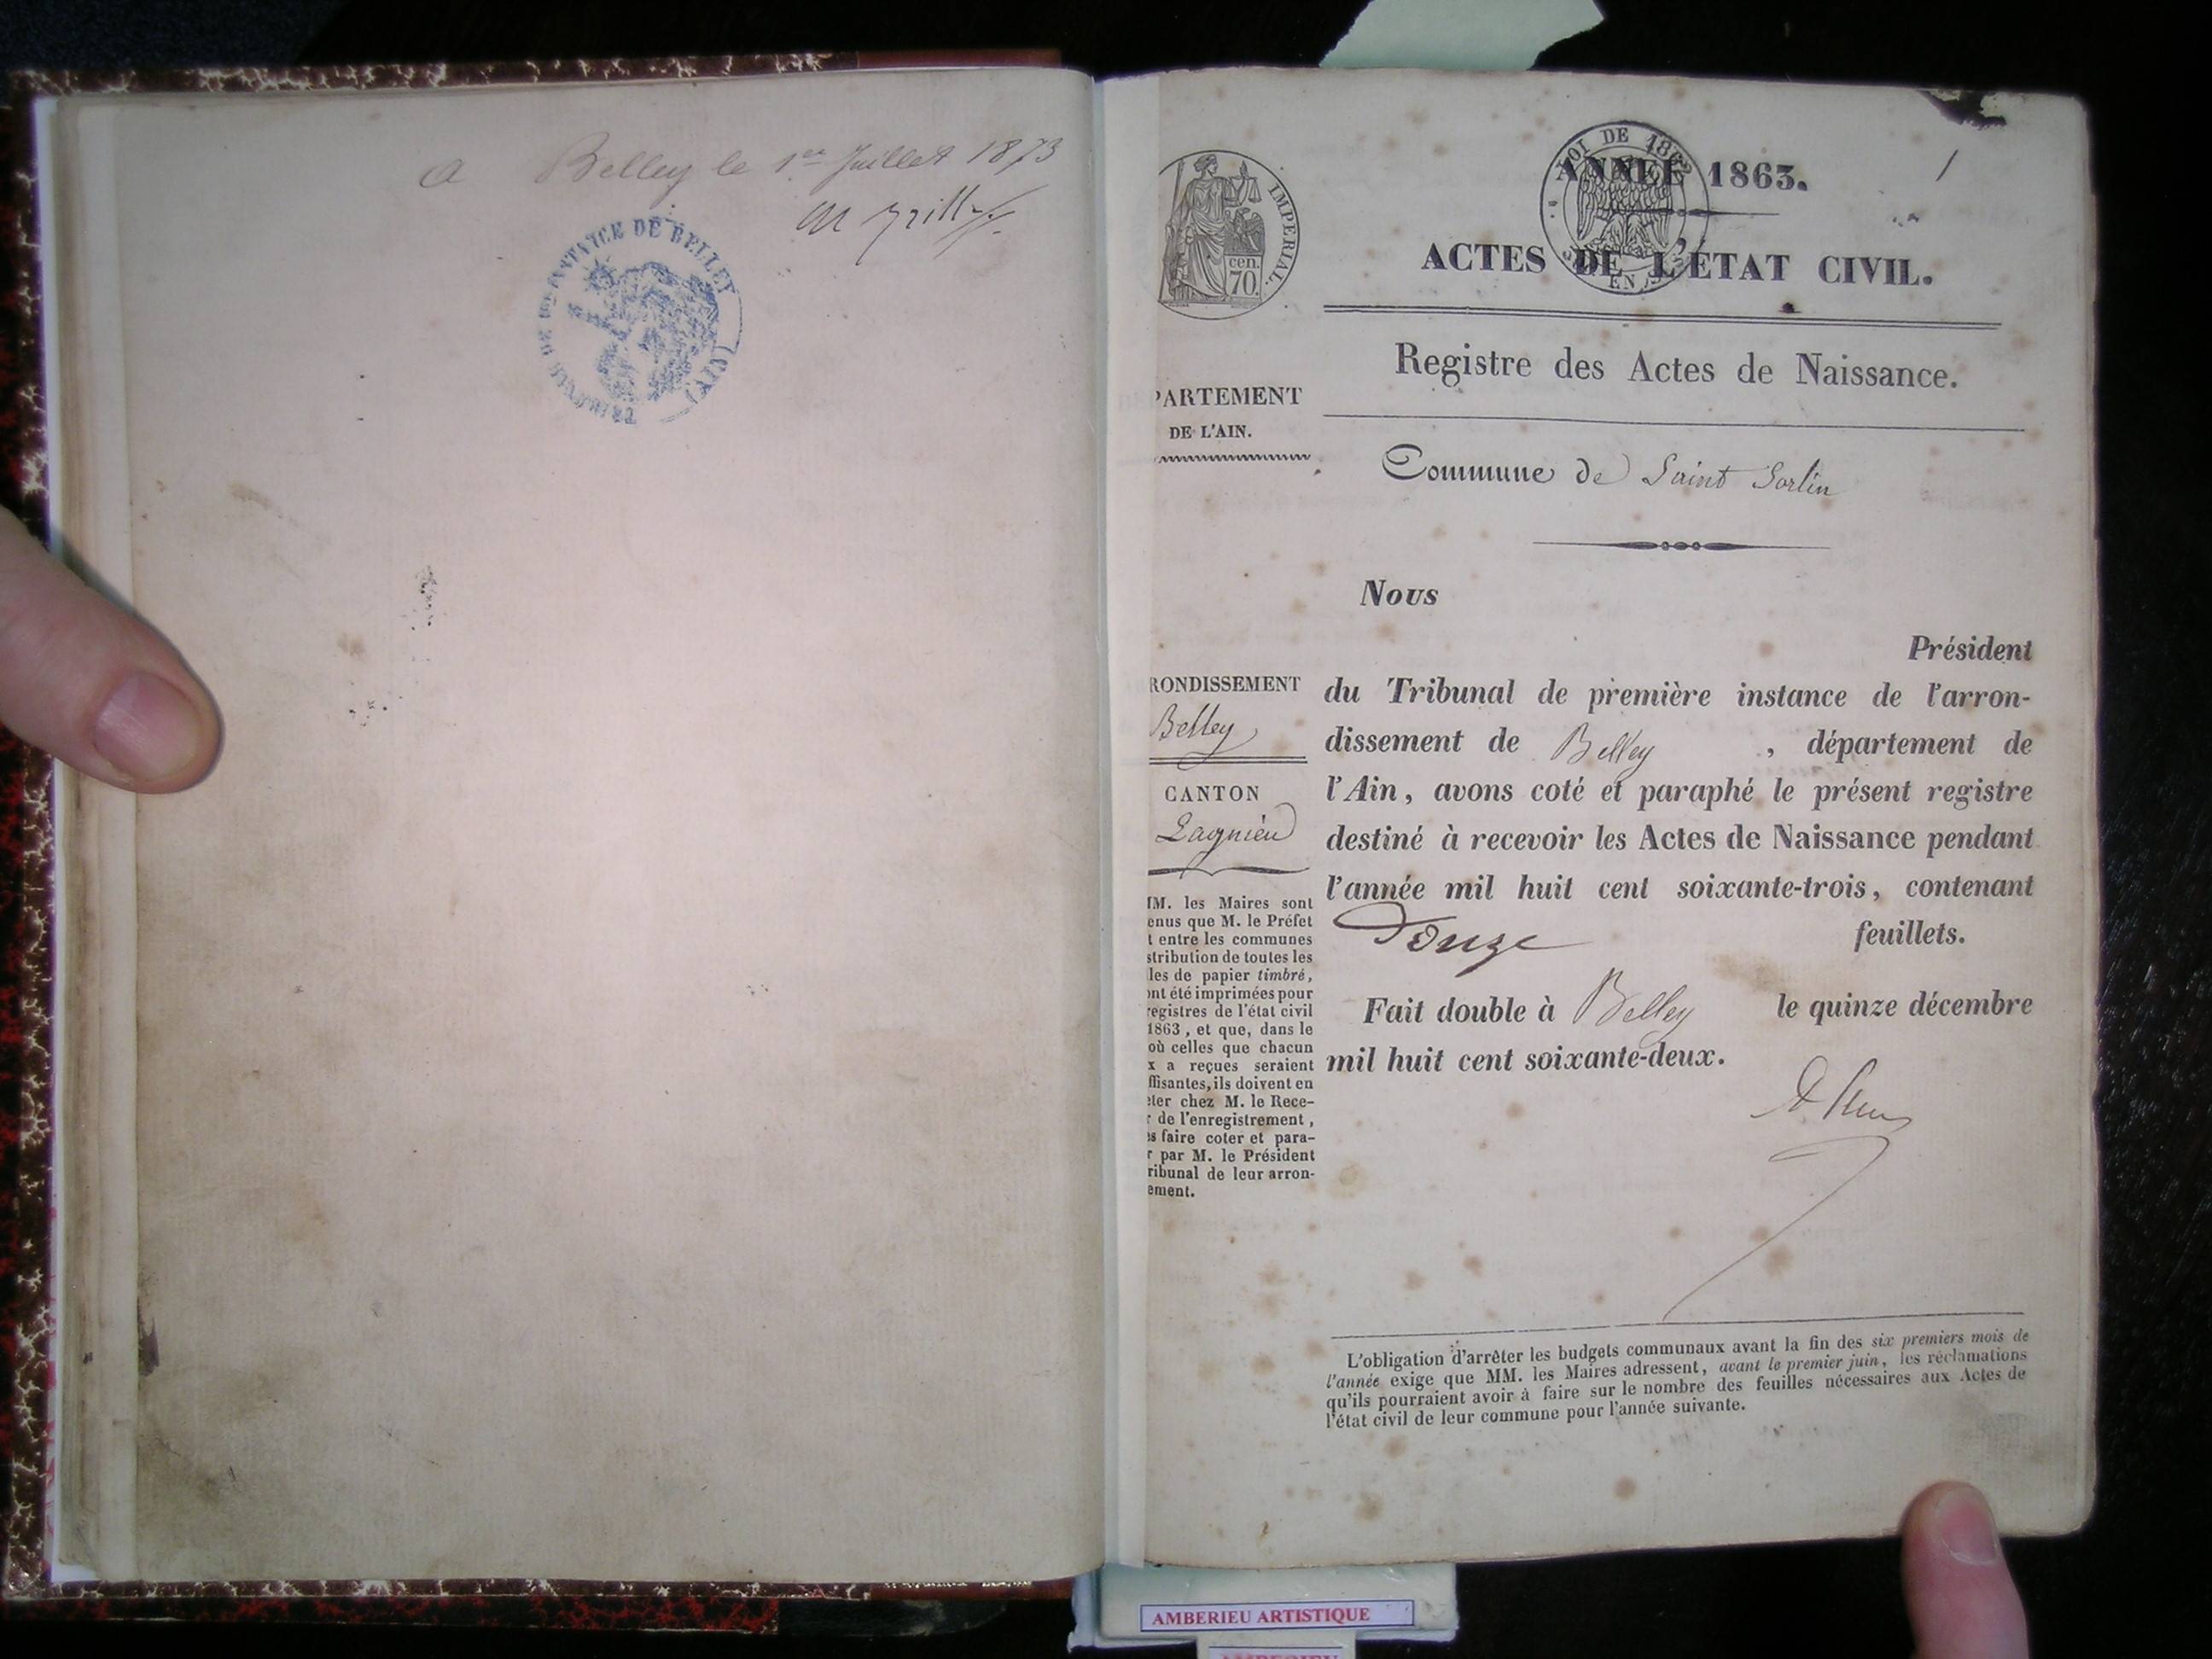 a Belley le 1er Juillet 1873
TRIBUNAL DE INSTANCE DE BELLEY (AIN)
IMPERIAL.
cen.
70.
LOI DE 1862
EN
1
ANNEE 1863.
ACTES DE L'ÉTAT CIVIL.
Registre des Actes de Naissance.
PARTEMENT
DE L'AIN.
Commune de Saint Sorlin
RONDISSEMENT
Belley
CANTON
Lagnieu
MM. les Maires sont
enus que M. le Préfet
t entre les communes
stribution de toutes les
les de papier timbré,
ont été imprimées pour
registres de l'état civil
1863, et que, dans le
où celles que chacun
x a reçues seraient
ffisantes, ils doivent en
eter chez M. le Rece-
r de l'enregistrement,
es faire coter et para-
r par M. le Président
ribunal de leur arron-
ement.
Nous
Président
du Tribunal de première instance de l'arron-
dissement de Belley , département de
l'Ain, avons coté et paraphé le présent registre
destiné à recevoir les Actes de Naissance pendant
l'année mil huit cent soixante-trois, contenant
Douze feuillets.
Fait double à Belley le quinze décembre
mil huit cent soixante-deux.
L'obligation d'arrêter les budgets communaux avant la fin des six premiers mois de
l'année exige que MM. les Maires adressent, avant le premier juin, les réclamations
qu'ils pourraient avoir à faire sur le nombre des feuilles nécessaires aux Actes de
l'état civil de leur commune pour l'année suivante.
AMBERIEU ARTISTIQUE
AMBERIEU